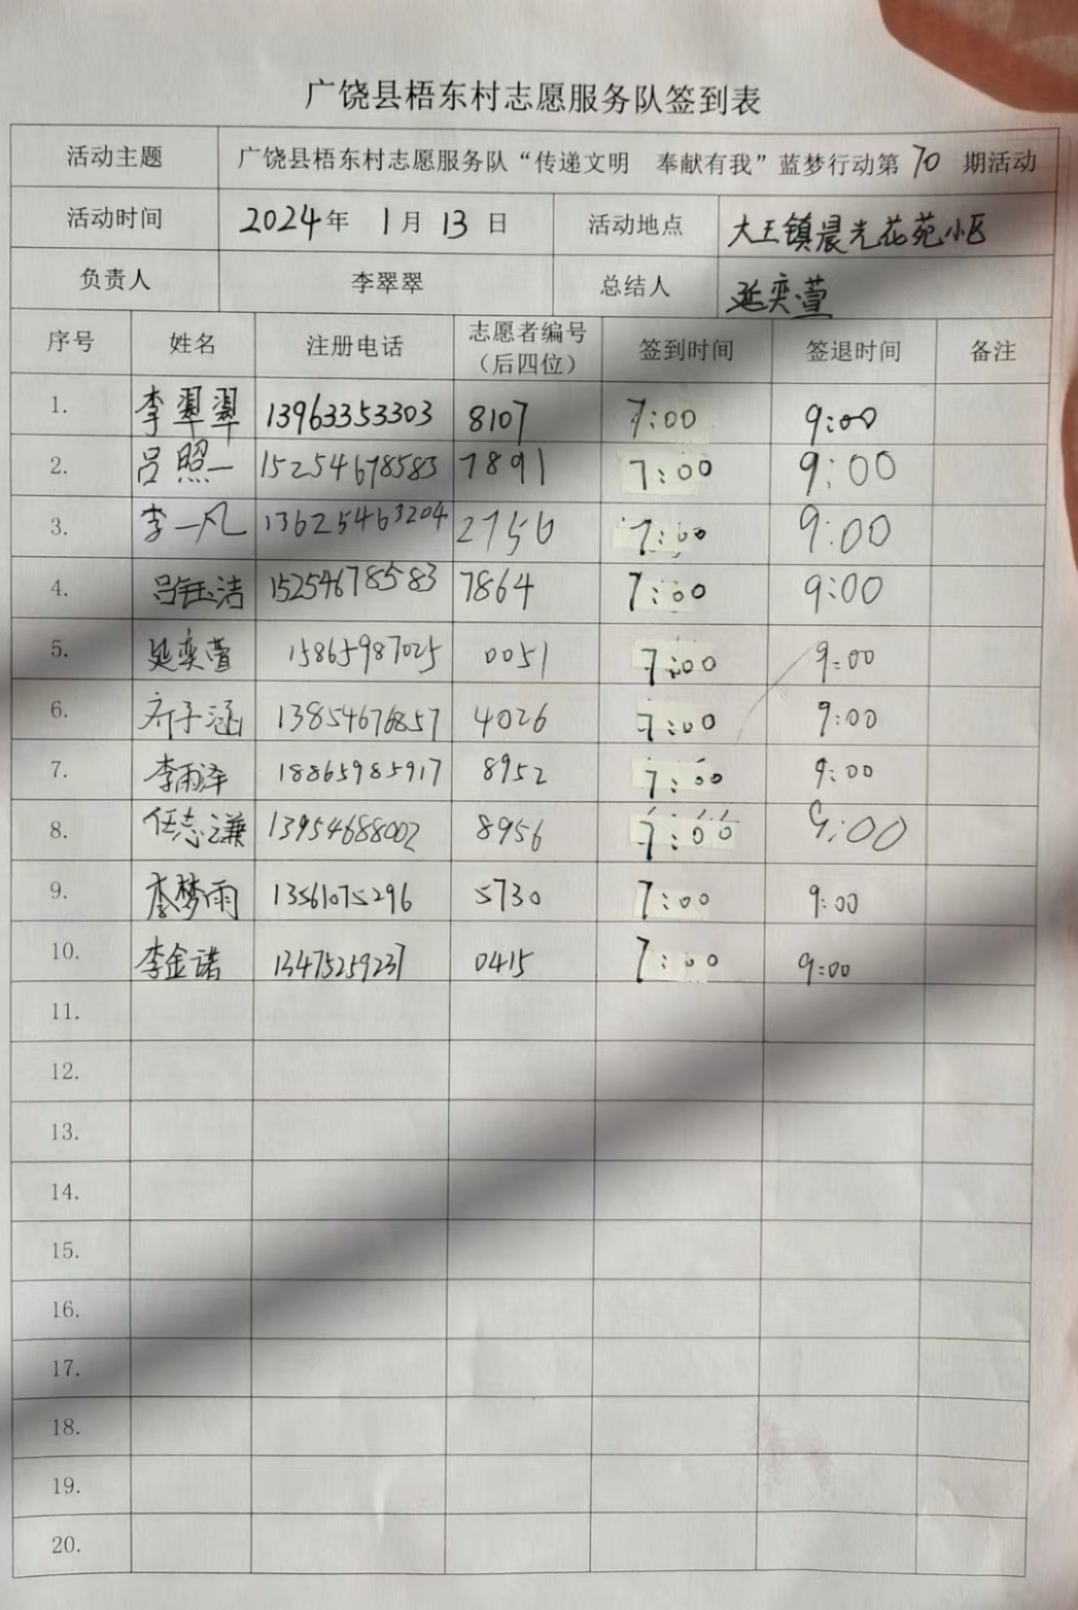 广饶县梧东村志愿服务队签到表
活动主题 广饶县梧东村志愿服务队“传递文明 奉献有我”蓝梦行动第70期活动
活动时间 2024年 1月 13日 活动地点 大王镇晨光花苑小区
负责人 李翠翠 总结人 延奕萱
序号 姓名 注册电话 志愿者编号（后四位） 签到时间 签退时间 备注
1. 李翠翠 13963353303 8107 7:00 9:00
2. 吕照一 15254678583 7891 7:00 9:00
3. 李一凡 13625463204 2756 7:00 9:00
4. 吕钰洁 15254678583 7864 7:00 9:00
5. 延奕萱 15865987025 0051 7:00 9:00
6. 齐子涵 13854676857 4026 7:00 9:00
7. 李雨泽 18865985917 8952 7:00 9:00
8. 任志谦 13954688002 8956 7:00 9:00
9. 李梦雨 13561075296 5730 7:00 9:00
10. 李金诺 13475259237 0415 7:00 9:00
11.
12.
13.
14.
15.
16.
17.
18.
19.
20.